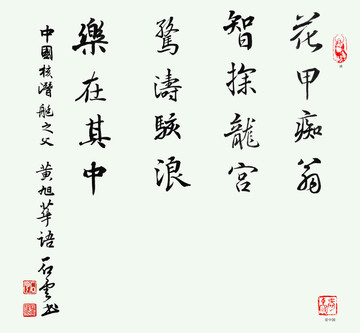 花甲痴翁
智探龍宮
驚濤駭浪
樂在其中
中國核潛艇之父 黃旭華語 石雲书